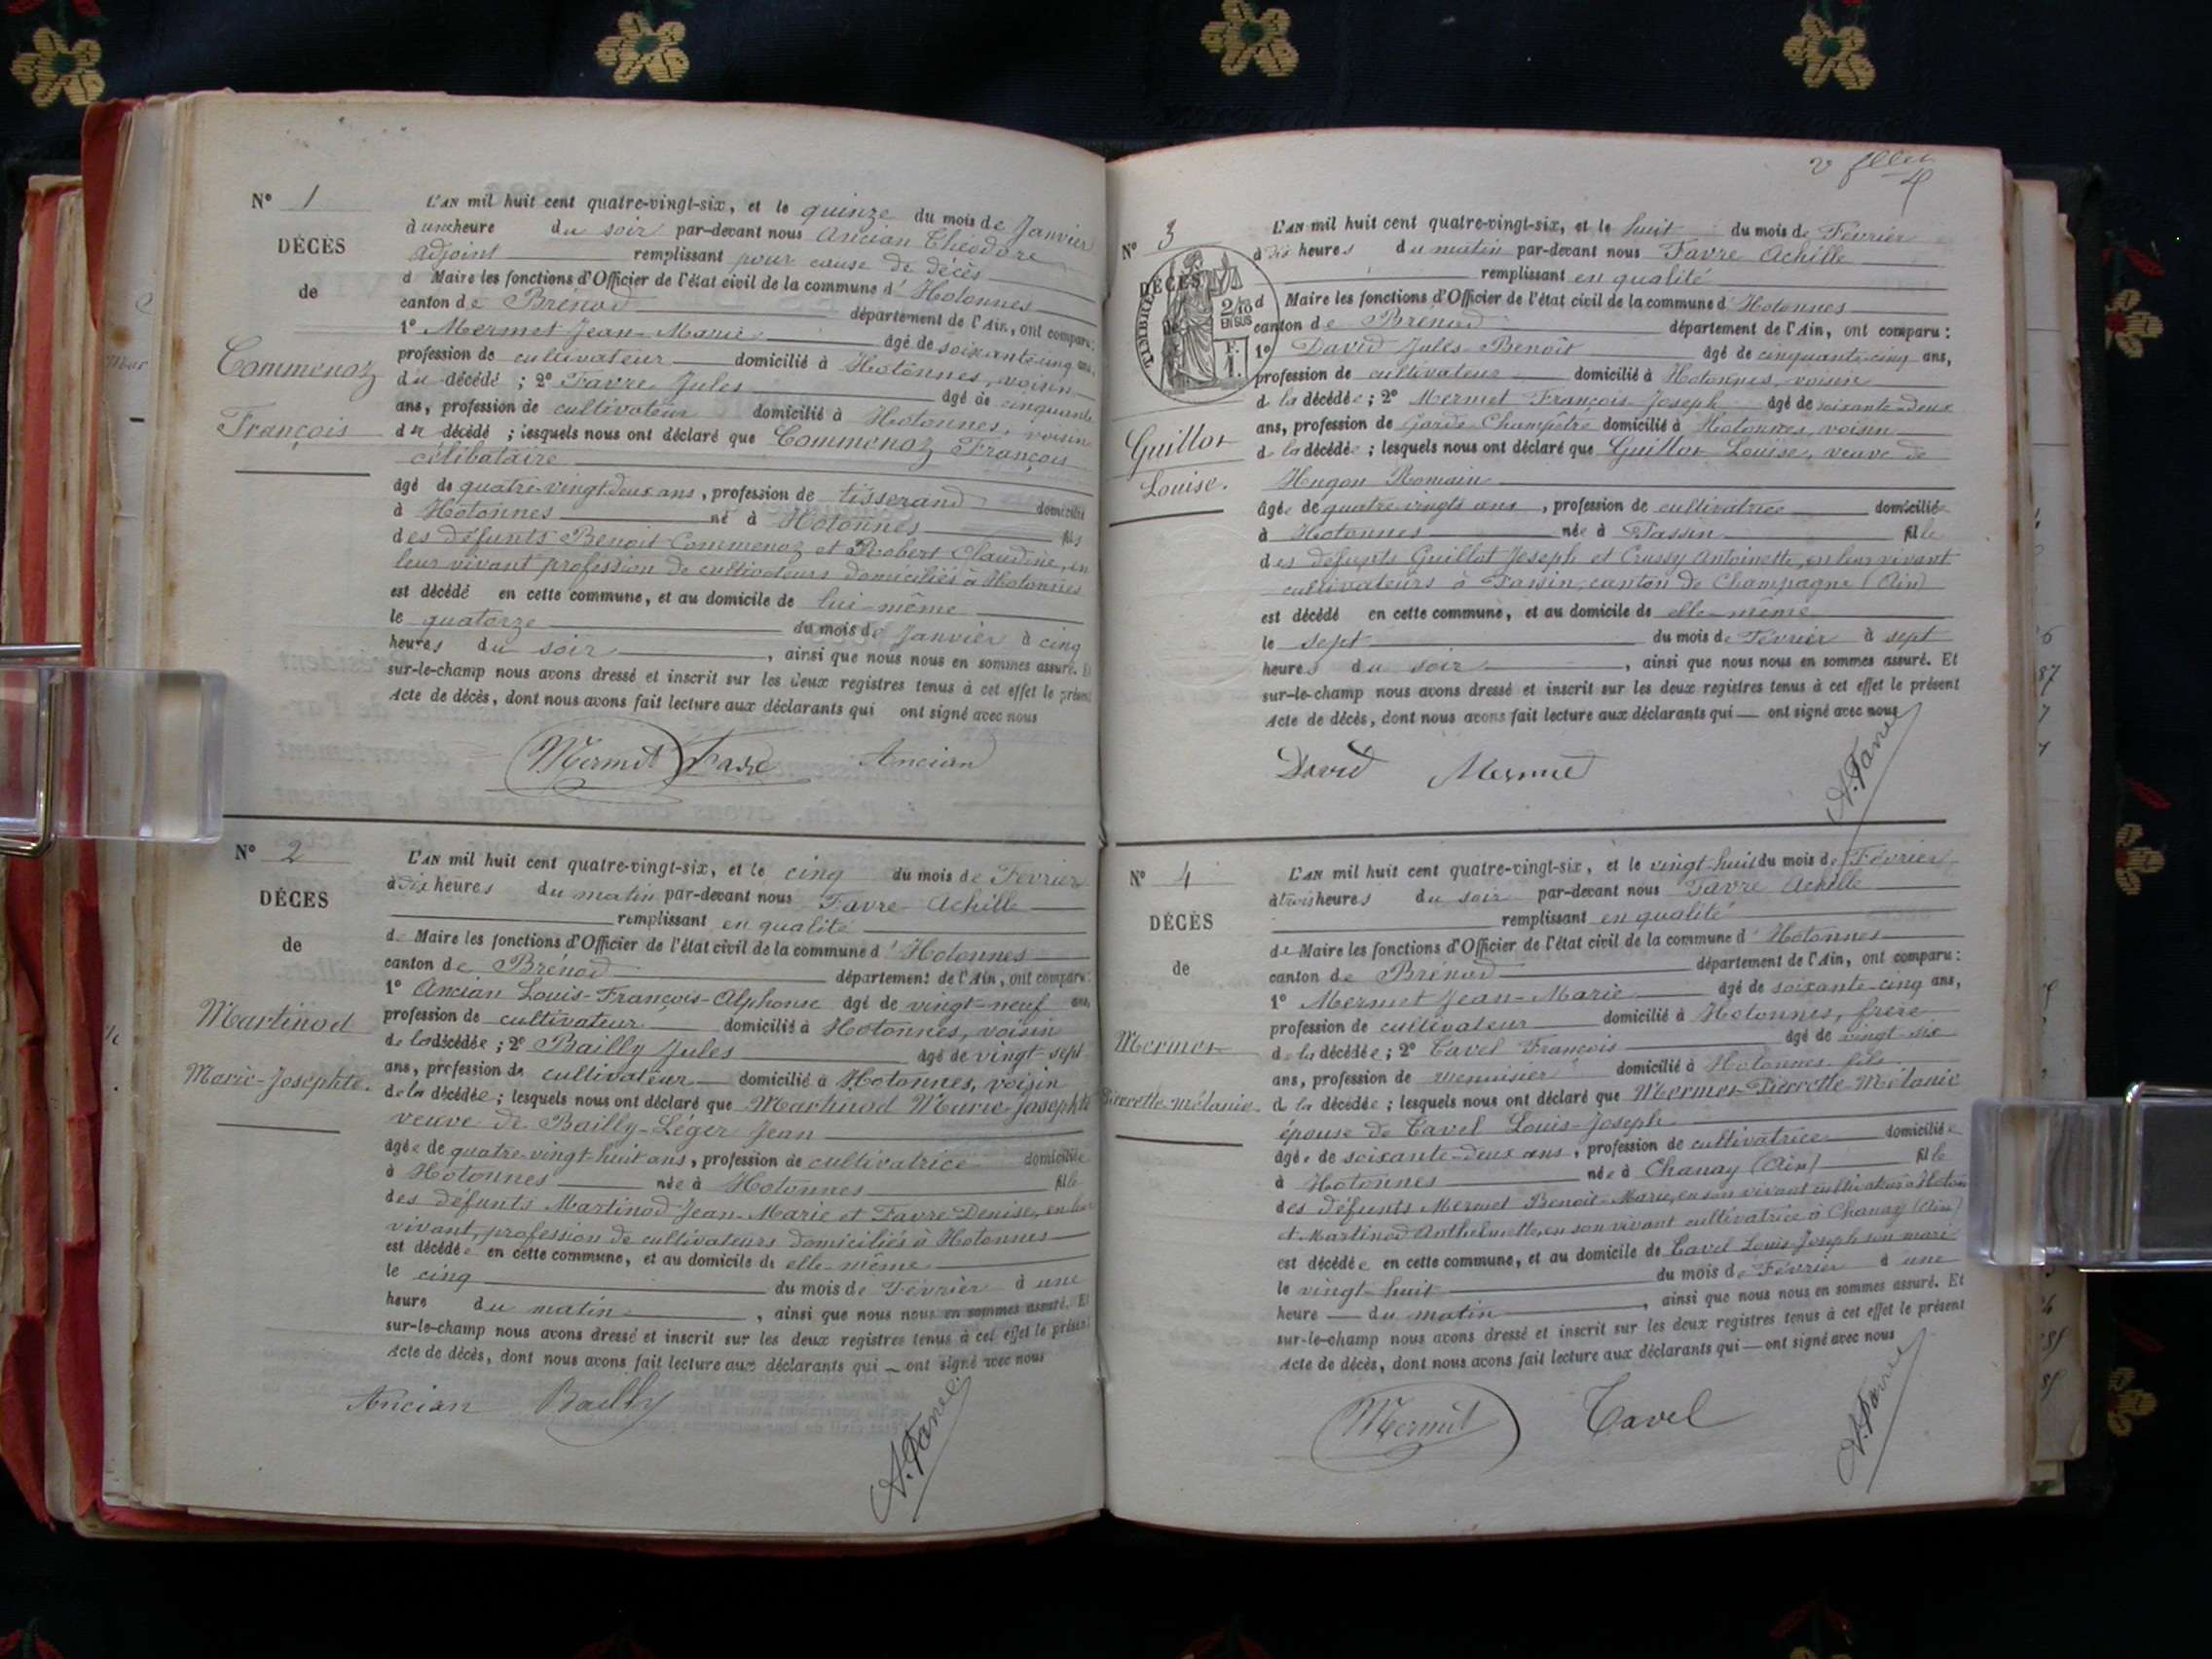 N° 1
DÉCÈS
de
Commenoz
François
L'AN mil huit cent quatre-vingt-six, et le quinze du mois de Janvier
à une heure du soir par-devant nous Ancian Théodore
adjoint remplissant pour cause de décès
d Maire les fonctions d'Officier de l'état civil de la commune d'Hotonnes
canton de Brénod département de l'Ain, ont comparu:
1° Mermet Jean-Marie âgé de soixante-cinq ans,
profession de cultivateur domicilié à Hotonnes, voisin
du décédé ; 2° Favre Jules âgé de cinquante
ans, profession de cultivateur domicilié à Hotonnes, voisin
du décédé ; lesquels nous ont déclaré que Commenoz François
célibataire
âgé de quatre-vingt-deux ans, profession de tisserand domicilié
à Hotonnes né à Hotonnes fils
des défunts Benoit Commenoz et Robert Claudine, en
leur vivant profession de cultivateurs domiciliés à Hotonnes
est décédé en cette commune, et au domicile de lui-même
le quatorze du mois de Janvier à cinq
heures du soir, ainsi que nous nous en sommes assuré. Et
sur-le-champ nous avons dressé et inscrit sur les deux registres tenus à cet effet le présent
Acte de décès, dont nous avons fait lecture aux déclarants qui ont signé avec nous
Mermet Favre Ancian
N° 2
DÉCÈS
de
Martinod
Marie-Josephte.
L'AN mil huit cent quatre-vingt-six, et le cinq du mois de Février
à dix heures du matin par-devant nous Favre Achille
remplissant en qualité
de Maire les fonctions d'Officier de l'état civil de la commune d'Hotonnes
canton de Brénod département de l'Ain, ont comparu:
1° Ancian Louis-François-Alphonse âgé de vingt-neuf ans,
profession de cultivateur domicilié à Hotonnes, voisin
de la décédée ; 2° Bailly Jules âgé de vingt-sept
ans, profession de cultivateur domicilié à Hotonnes, voisin
de la décédée ; lesquels nous ont déclaré que Martinod Marie-Josephte
veuve de Bailly-Léger Jean
âgée de quatre-vingt-huit ans, profession de cultivatrice domiciliée
à Hotonnes née à Hotonnes fille
des défunts Martinod Jean-Marie et Favre Denise, en leur
vivant, profession de cultivateurs domiciliés à Hotonnes
est décédée en cette commune, et au domicile de elle-même
le cinq du mois de Février à une
heure du matin, ainsi que nous nous en sommes assuré. Et
sur-le-champ nous avons dressé et inscrit sur les deux registres tenus à cet effet le présent
Acte de décès, dont nous avons fait lecture aux déclarants qui — ont signé avec nous
Ancian Bailly A. Favre
N° 3
DÉCÈS
de
TIMBRE
2/10 d
EN SUS
Guillot
Louise.
L'AN mil huit cent quatre-vingt-six, et le huit du mois de Février
à dix heures du matin par-devant nous Favre Achille
remplissant en qualité
d Maire les fonctions d'Officier de l'état civil de la commune d'Hotonnes
canton de Brénod département de l'Ain, ont comparu :
1° David Jules-Benoit âgé de cinquante-cinq ans,
profession de cultivateur domicilié à Hotonnes, voisin
de la décédée ; 2° Mermet François-Joseph âgé de soixante-deux
ans, profession de Garde-Champêtre domicilié à Hotonnes, voisin
de la décédée ; lesquels nous ont déclaré que Guillot Louise, veuve de
Hugon Romain
âgée de quatre vingts ans, profession de cultivatrice domiciliée
à Hotonnes née à Passin fille
des défunts Guillot Joseph et Crussy Antoinette, en leur vivant
cultivateurs à Passin, canton de Champagne (Ain)
est décédé en cette commune, et au domicile de elle-même
le sept du mois de Février à sept
heures du soir, ainsi que nous nous en sommes assuré. Et
sur-le-champ nous avons dressé et inscrit sur les deux registres tenus à cet effet le présent
Acte de décès, dont nous avons fait lecture aux déclarants qui — ont signé avec nous
David Mermet A. Favre
N° 4
DÉCÈS
de
Mermet
Pierrette-Mélanie.
L'AN mil huit cent quatre-vingt-six, et le vingt-huit du mois de Février
à trois heures du soir par-devant nous Favre Achille
remplissant en qualité
de Maire les fonctions d'Officier de l'état civil de la commune d'Hotonnes
canton de Brénod département de l'Ain, ont comparu :
1° Mermet Jean-Marie âgé de soixante-cinq ans,
profession de cultivateur domicilié à Hotonnes, frère
de la décédée ; 2° Cavel François âgé de vingt-six
ans, profession de menuisier domicilié à Hotonnes fils
de la décédée ; lesquels nous ont déclaré que Mermet Pierrette-Mélanie
épouse de Cavel Louis-Joseph
âgée de soixante-deux ans, profession de cultivatrice domiciliée
à Hotonnes née à Chanay (Ain) fille
des défunts Mermet Benoit-Marie, en son vivant cultivateur à Hotonnes
et Martinod Anthelmette, en son vivant cultivatrice à Chanay (Ain)
est décédée en cette commune, et au domicile de Cavel Louis-Joseph son mari
le vingt-huit du mois de Février à une
heure — du matin, ainsi que nous nous en sommes assuré. Et
sur-le-champ nous avons dressé et inscrit sur les deux registres tenus à cet effet le présent
Acte de décès, dont nous avons fait lecture aux déclarants qui — ont signé avec nous
Mermet Cavel A. Favre